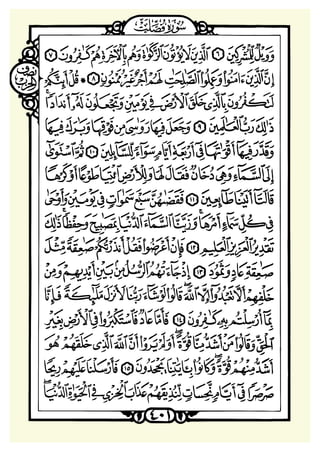 سُورَةُ فُصِّلَتْ
وَوَيْلٌ لِلْمُشْرِكِينَ ﴿٦﴾ الَّذِينَ لَا يُؤْتُونَ الزَّكٰوةَ وَهُمْ بِالْاٰخِرَةِ هُمْ كٰفِرُونَ ﴿٧﴾
نصف الحزب
إِنَّ الَّذِينَ اٰمَنُوا وَعَمِلُوا الصّٰلِحٰتِ لَهُمْ أَجْرٌ غَيْرُ مَمْنُونٍ ﴿٨﴾ قُلْ أَئِنَّكُمْ
لَتَكْفُرُونَ بِالَّذِي خَلَقَ الْأَرْضَ فِي يَوْمَيْنِ وَتَجْعَلُونَ لَهُ أَنْدَادًا
ذٰلِكَ رَبُّ الْعٰلَمِينَ ﴿٩﴾ وَجَعَلَ فِيهَا رَوَاسِيَ مِنْ فَوْقِهَا وَبٰرَكَ فِيهَا
وَقَدَّرَ فِيهَا أَقْوَاتَهَا فِي أَرْبَعَةِ أَيَّامٍ سَوَاءً لِلسَّائِلِينَ ﴿١٠﴾ ثُمَّ اسْتَوٰى
إِلَى السَّمَاءِ وَهِيَ دُخَانٌ فَقَالَ لَهَا وَلِلْأَرْضِ ائْتِيَا طَوْعًا أَوْ كَرْهًا
قَالَتَا أَتَيْنَا طَائِعِينَ ﴿١١﴾ فَقَضٰهُنَّ سَبْعَ سَمٰوَاتٍ فِي يَوْمَيْنِ وَأَوْحٰى
فِي كُلِّ سَمَاءٍ أَمْرَهَا وَزَيَّنَّا السَّمَاءَ الدُّنْيَا بِمَصَابِيحَ وَحِفْظًا ذٰلِكَ
تَقْدِيرُ الْعَزِيزِ الْعَلِيمِ ﴿١٢﴾ فَإِنْ أَعْرَضُوا فَقُلْ أَنْذَرْتُكُمْ صٰعِقَةً مِثْلَ
صٰعِقَةِ عَادٍ وَثَمُودَ ﴿١٣﴾ إِذْ جَاءَتْهُمُ الرُّسُلُ مِنْ بَيْنِ أَيْدِيهِمْ وَمِنْ
خَلْفِهِمْ أَلَّا تَعْبُدُوا إِلَّا اللّٰهَ قَالُوا لَوْ شَاءَ رَبُّنَا لَأَنْزَلَ مَلٰئِكَةً فَإِنَّا
بِمَا أُرْسِلْتُمْ بِهِ كٰفِرُونَ ﴿١٤﴾ فَأَمَّا عَادٌ فَاسْتَكْبَرُوا فِي الْأَرْضِ بِغَيْرِ
الْحَقِّ وَقَالُوا مَنْ أَشَدُّ مِنَّا قُوَّةً أَوَلَمْ يَرَوْا أَنَّ اللّٰهَ الَّذِي خَلَقَهُمْ هُوَ
أَشَدُّ مِنْهُمْ قُوَّةً وَكَانُوا بِاٰيٰتِنَا يَجْحَدُونَ ﴿١٥﴾ فَأَرْسَلْنَا عَلَيْهِمْ رِيحًا
صَرْصَرًا فِي أَيَّامٍ نَحِسَاتٍ لِنُذِيقَهُمْ عَذَابَ الْخِزْيِ فِي الْحَيٰوةِ الدُّنْيَا
٤٠١